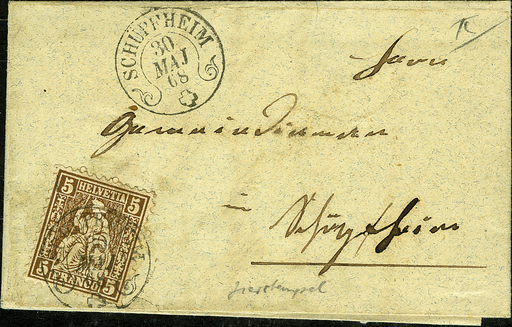 SCHÜPFHEIM
30
MAJ
68
Herrn
in
Schüpfheim
5 HELVETIA 5
5 FRANCO 5